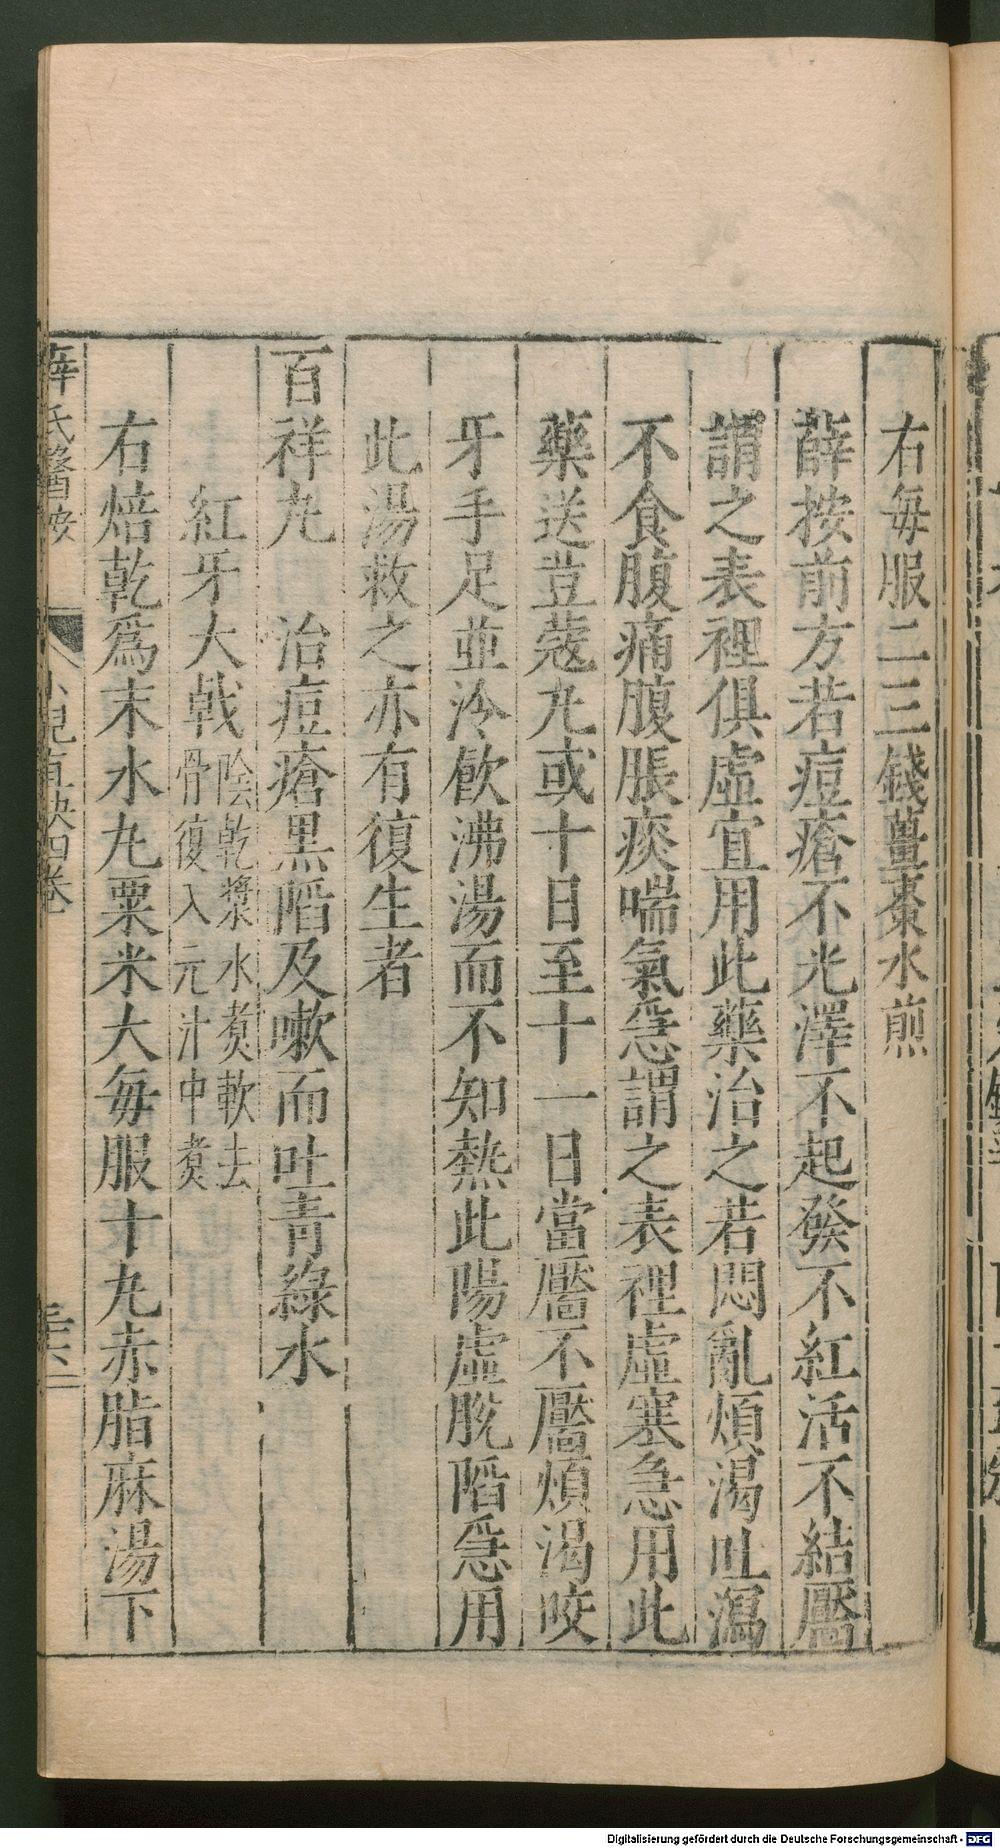 右每服二三錢薑棗水煎
薛按前方若痘瘡不光澤不起發不紅活不結靨
謂之表裡俱虛宜用此藥治之若悶亂煩渴吐瀉
不食腹痛腹脹痰喘氣急謂之表裡虛塞急用此
藥送荳蔻丸或十日至十一日當靨不靨煩渴咬
牙手足並冷飲沸湯而不知熱此陽虛脫陷急用
此湯救之亦有復生者
百祥丸 治痘瘡黑陷及嗽而吐青綠水
紅牙大戟 陰乾漿水煑軟去
骨復入元汁中煑
右焙乾爲末水丸粟米大每服十丸赤脂麻湯下
薛氏醫按 小兒直訣四卷
Digitalisierung gefördert durch die Deutsche Forschungsgemeinschaft - DFG